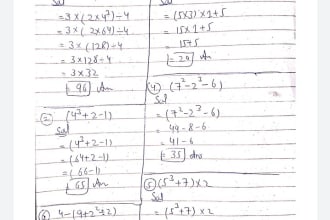 Sol
= 3 × (2×4³) ÷ 4
= 3 × (2×64) ÷ 4
= 3 × (128) ÷ 4
= 3 × 128 ÷ 4
= 3 × 32
= 96 Ans
② (4³+2-1)
Sol
= (4³+2-1)
= (64+2-1)
= (66-1)
= 65 Ans
⑥ 4-(9+2²÷2)
= (5×3)×1+5
= 15×1+5
= 15+5
④ (7²-2³-6)
Sol
= (7²-2³-6)
= 49-8-6
= 41-6
= 35 Ans
⑤ (5³+7)×2
Sol
= (5³+7)×2